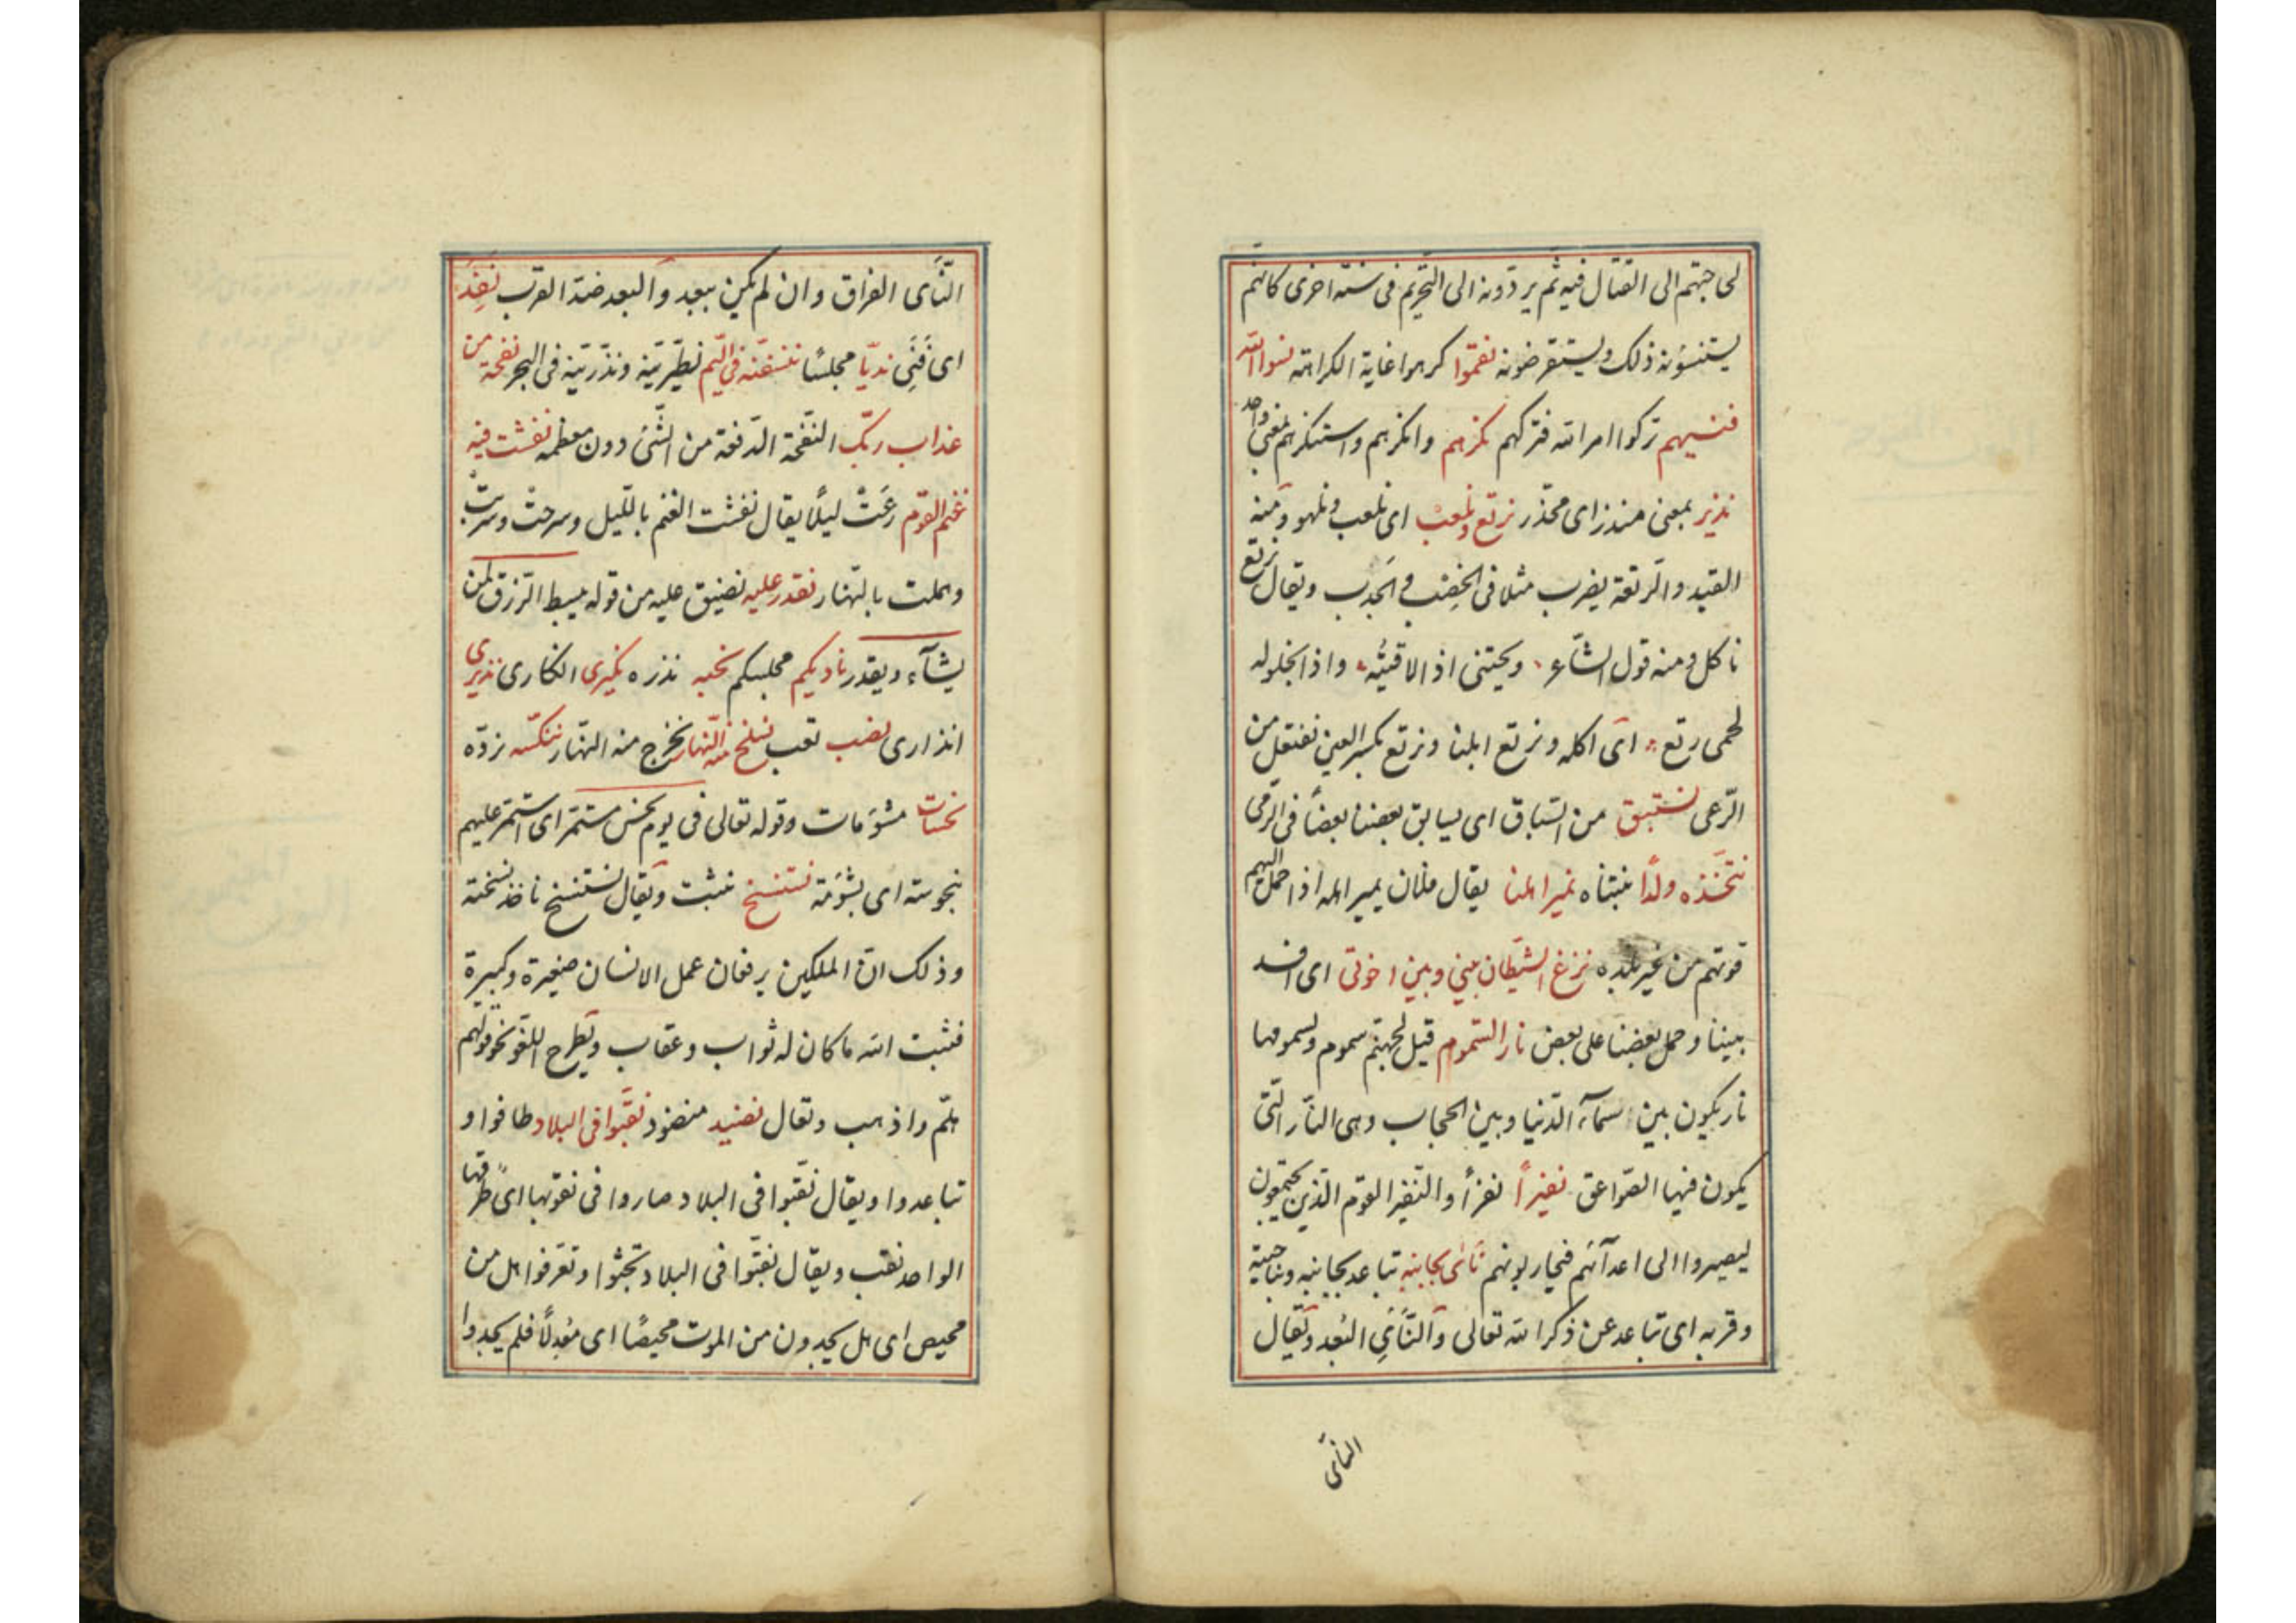 لحاجتهم الى القتال فيه ثم يردّونه الى التّحريم فى سنة اخرى كانهم
يستنسؤنه ذلك ويستقرضونه نقموا كرهوا غاية الكراهة نسوا الله
فنسيهم تركوا امر الله فتركهم نكرهم وانكرهم واستنكرهم بمعنى واحد
نذير بمعنى منذر اى محذّر نرتع ونلعب اى نلعب ونلهو ومنه
القيد والرّتعة يضرب مثلا فى الخصب و الجدب ويقال نرتع
ناكل ومنه قول الشّاعر ويحيّنى اذا لاقيته واذا يخلو له
لحمى رتع اى اكله ونرتع ابلنا ونرتع بكسر العين نفتعل من
الرّعى نستبق من السّباق اى يسابق بعضنا بعضًا فى الرّمى
نتّخذه ولدًا نتبنّاه نمير اهلنا يقال فلان يمير اهله اذا حمل اليهم
قوتهم من غير بلده نزغ الشّيطان بينى وبين اخوتى اى افسد
بيننا وحمل بعضنا على بعض نار السّموم قيل لجهنّم سموم ولسمومها
نار يكون بين سمآء الدّنيا وبين الحجاب وهى النّار الّتى
يكون فيها الصّواعق نفيرًا نفرًا والنّفير القوم الّذين يجتمعون
ليصيروا الى اعدآئهم فيحاربونهم نأى بجانبه تباعد بجانبه وناحيته
وقربه اى تباعد عن ذكر الله تعالى والنّأى البعد ويقال
النّأى
النّأى الفراق وان لم يكن ببعد والبعد ضدّ القرب نفد
اى فنى نديّا مجلسًا ننسفنّه فى اليمّ نطيّرنّه ونذرينّه فى البحر نفحة من
عذاب ربّك النّفحة الدّفعة من الشّئ دون معظمه نفشت فيه
غنم القوم رعت ليلًا يقال نفشت الغنم باللّيل وسرحت وسربت
وهملت بالنّهار نقدر عليه نضيق عليه من قوله يبسط الرّزق لمن
يشآء ويقدر ناديكم مجلسكم نحبه نذره نكيرى انكارى نذيرى
انذارى نصب تعب نسلخ منه النّهار نخرج منه النّهار ننكّسه نردّه
نحسات مشؤمات وقوله تعالى فى يوم نحس مستمر اى استمر عليهم
بنحوسته اى بشؤمه نستنسخ نثبت ويقال نستنسخ ناخذ نسخته
وذلك انّ الملكين يرفعان عمل الانسان صغيرة وكبيرة
فثبت الله ما كان له ثواب وعقاب ويطرح اللّغو نحو قولهم
هلمّ واذهب وتعال نضيد منضود نقّبوا فى البلاد طافوا و
تباعدوا ويقال نقّبوا فى البلاد صاروا فى نقوبها اى طرقها
الواحد نقب ويقال نقّبوا فى البلاد بحثوا وتعرفوا هل من
محيص اى هل يجدون من الموت محيصًا اى معدلًا فلم يجدوا